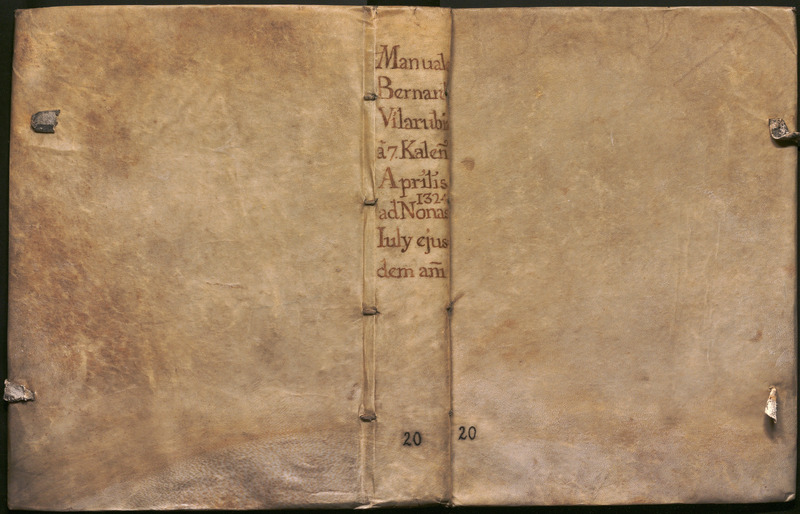 Manual
Bernar
Vilarubi
ã 7. Kaleñ
Aprilis
1324
ad Nonas
Iuly ejus
dem am̃
20
20